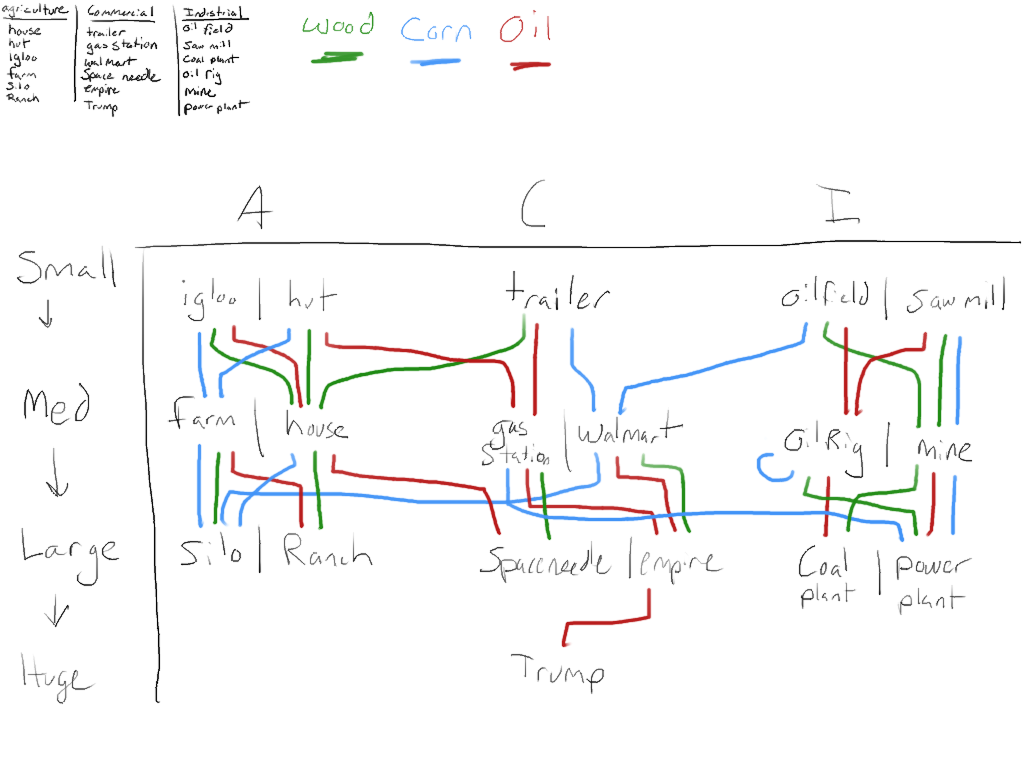 agriculture Commercial Indistrial
house trailer oil field
hut gas station Saw mill
igloo walmart Coal plant
farm Space needle oil rig
Silo empire mine
Ranch Trump power plant
Wood Corn Oil
A C I
Small igloo | hut trailer Oilfield | Sawmill
Med farm | house gas station | Walmart Oil Rig | mine
Large Silo | Ranch Spaceneedle | empire Coal plant | power plant
Huge Trump